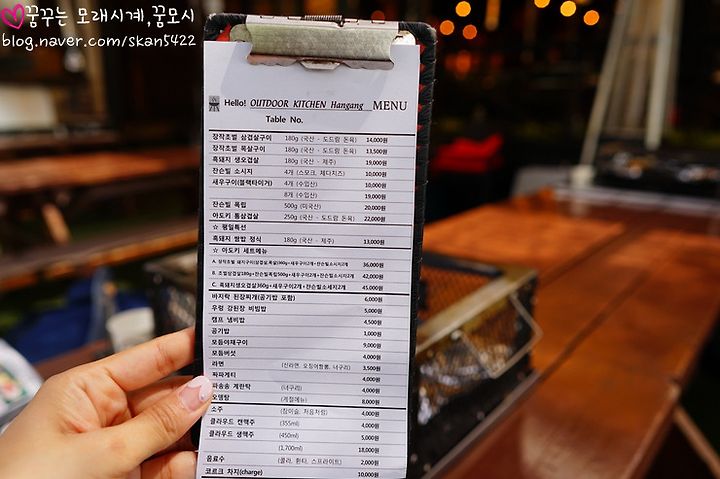 꿈꾸는 모래시계,꿈모시
blog.naver.com/skan5422
Hello! OUTDOOR KITCHEN Hangang MENU
Table No.
장작초벌 삼겹살구이 180g (국산 - 도드람 돈육) 14,000원
장작초벌 목살구이 180g (국산 - 도드람 돈육) 13,500원
흑돼지 생오겹살 180g (국산 - 제주) 19,000원
잔슨빌 소시지 4개 (스모크, 체다치즈) 10,000원
새우구이(블랙타이거) 4개 (수입산) 10,000원
8개 (수입산) 19,000원
잔슨빌 폭립 500g (미국산) 20,000원
아도키 통삼겹살 250g (국산 - 도드람 돈육) 22,000원
☆ 평일특선
흑돼지 쌈밥 정식 180g (국산 - 제주) 13,000원
☆ 아도키 세트메뉴
A. 장작초벌 돼지구이(삼겹살,목살)360g+새우구이2개+잔슨빌소시지2개 36,000원
B. 초벌삼겹살180g+잔슨빌폭립500g+새우구이2개+잔슨빌소시지2개 42,000원
C. 흑돼지생오겹살360g+새우구이2개+잔슨빌소세지2개 45,000원
바지락 된장찌개(공기밥 포함) 6,000원
우렁 강된장 비빔밥 5,000원
캠프 냄비밥 4,500원
공기밥 1,000원
모듬야채구이 9,000원
모듬버섯 4,000원
라면 (신라면, 오징어짬뽕, 너구리) 3,500원
짜파게티 4,000원
파송송 계란탁 (너구리) 4,000원
오뎅탕 (계절메뉴) 8,000원
소주 (참이슬, 처음처럼) 4,000원
클라우드 캔맥주 (355ml) 4,000원
클라우드 생맥주 (450ml) 5,000원
(1,700ml) 18,000원
음료수 (콜라, 환타, 스프라이트) 2,000원
코르크 차지(charge) 10,000원